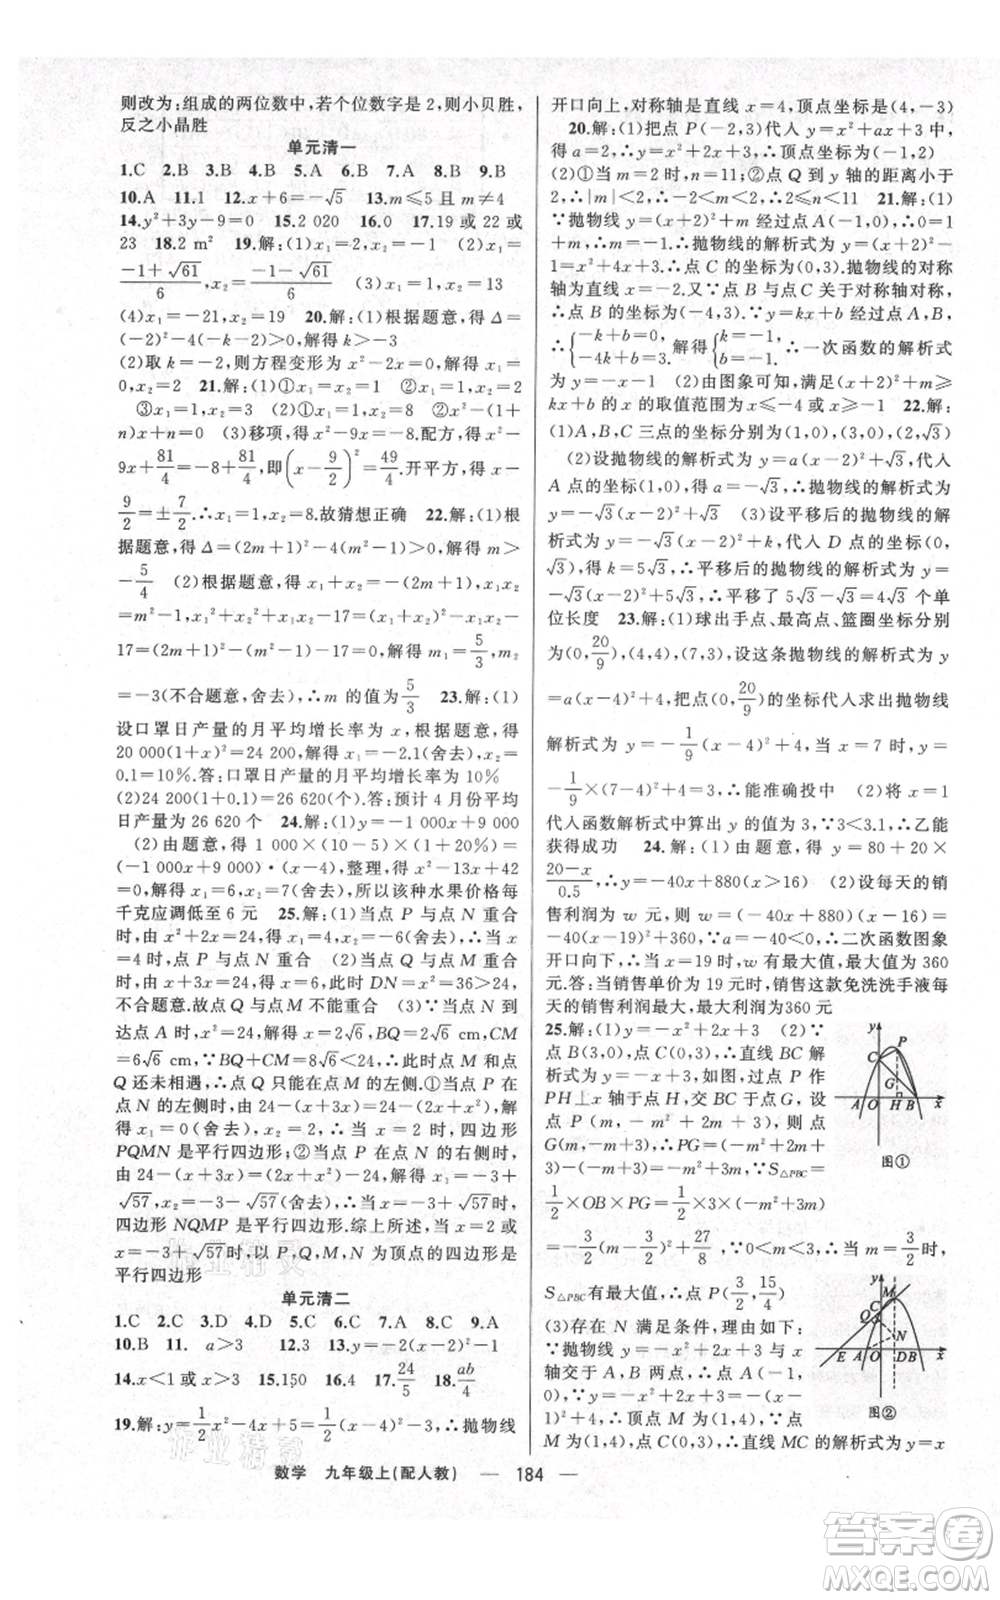 则改为:组成的两位数中,若个位数字是 2,则小贝胜,
反之小晶胜
单元清一
1.C 2.B 3.B 4.A 5.A 6.B 7.A 8.B 9.B
10.A 11.1 12.x+6=-√5 13.m≤5 且 m≠4
14.y²+3y-9=0 15.2 020 16.0 17.-21 或 22 或
23 18.2 m² 19.解:(1)x₁=2,x₂=-1 (2)x₁=
(-1+√61)/6,x₂=(-1-√61)/6 (3)x₁=1,x₂=13
(4)x₁=-1,x₂=19 20.解:(1)根据题意,得 Δ=
(-2)²-4(-k-2)>0,解得 k>-3
(2)取 k=-2,则方程变形为 x²-2x=0,解得 x₁=
0,x₂=2 21.解:(1)①x₁=1,x₂=1 ②x₁=1,x₂=2
③x₁=1,x₂=3 (2)①x₁=1,x₂=n ②x²-(1+
n)x+n=0 (3)移项,得 x²-9x=-8.配方,得 x²-
9x+81/4=-8+81/4,即(x-9/2)²=49/4.开平方,得 x-
9/2=±7/2.∴x₁=1,x₂=8.故猜想正确 22.解:(1)根
据题意,得 Δ=(2m+1)²-4(m²-1)>0,解得 m>
-5/4 (2)根据题意,得 x₁+x₂=-(2m+1),x₁x₂=
m²-1,x₁²+x₂²+x₁x₂-17=(x₁+x₂)²-x₁x₂-
17=(2m+1)²-(m²-1)-17=0.解得 m₁=5/3,m₂
=-3(不合题意,舍去),∴m 的值为5/3 23.解:(1)
设口罩日产量的月平均增长率为 x,根据题意,得
20 000(1+x)²=24 200,解得 x₁=-2.1(舍去),x₂=
0.1=10%.答:口罩日产量的月平均增长率为 10%
(2)24 200(1+0.1)=26 620(个).答:预计 4 月份平均
日产量为 26 620 个 24.解:(1)y=-1 000x+9 000
(2)由题意,得 1 000×(10-5)×(1+20%)=
(-1 000x+9 000)·(x-4),整理,得 x²-13x+42
=0,解得 x₁=6,x₂=7(舍去),所以该种水果价格每
千克应调低至 6 元 25.解:(1)当点 P 与点 N 重合
时,由 x²+2x=24,得 x₁=4,x₂=-6(舍去),∴当 x
=4时,点 P 与点 N 重合 (2)当点 Q 与点 M 重合
时,由 x+3x=24,得 x=6,此时 DN=x²=36>24,
不符合题意.故点 Q 与点 M 不能重合 (3)∵点 N 到
达点 A 时,x²=24,解得 x=2√6,BQ=2√6 cm,CM
=6√6 cm,∵BQ+CM=8√6<24,∴此时点 M 和点
Q 还未相遇,∴点 Q 只能在点 M 的左侧.①当点 P
在点 N 的左侧时,由 24-(x+3x)=24-(2x+x²),
解得 x₁=0(舍去),x₂=2,∴当 x=2 时,四边形
PQMN 是平行四边形;②当点 P 在点 N 的右侧时,
由 24-(x+3x)=(2x+x²)-24,解得 x₁=-3+
√57,x₂=-3-√57(舍去),∴当 x=-3+√57时,
四边形 NQMP 是平行四边形.综上所述,当 x=2 或
x=-3+√57时,以 P,Q,M,N 为顶点的四边形是
平行四边形
单元清二
1.C 2.C 3.D 4.D 5.C 6.B 7.D 8.C 9.A
10.B 11. a>3 12.< 13.y=-2(x+2)²-2
14.x<1 或 x>3 15.150 16.4 17.24/5 18.ab/4
19.解:y=1/2x²-4x+5=1/2(x-4)²-3,∴抛物线
开口向上,对称轴是直线 x=4,顶点坐标是(4,-3)
20.解:(1)把点 P(-2,3)代入 y=x²+ax+3 中,
得 a=2,∴y=(x+1)²+2,∴顶点坐标为(-1,2)
(2)①当 m=2 时,n=11;②点 Q 到 y 轴的距离小于
2,∴|m|<2,∴-2<m<2,∴2≤n<11 21.解:(1)
∵抛物线 y=(x+2)²+m 经过点 A(-1,0),∴0=1
+m,∴m=-1,∴抛物线的解析式为 y=(x+2)²-1
=x²+4x+3,∴点 C 的坐标为(0,3).抛物线的对称
轴为直线 x=-2.又∵点 B 与点 C 关于对称轴对称,
∴点 B 的坐标为(-4,3).∵y=kx+b 经过点 A,B,
∴{-k+b=0, -4k+b=3.解得{k=-1, b=-1.∴一次函数的解析式
为 y=-x-1 (2)由图象可知,满足(x+2)²+m≥
kx+b 的 x 的取值范围为 x≤-4 或 x≥-1 22.解:
(1)A,B,C 三点的坐标分别为(1,0),(3,0),(2,√3)
(2)设抛物线的解析式为 y=a(x-2)²+√3,代入
A 点的坐标(1,0),得 a=-√3,∴抛物线的解析式为
y=-√3(x-2)²+√3 (3)设平移后的抛物线的解析
式为 y=-√3(x-2)²+k,代入 D 点的坐标(0,
√3),得 k=5√3,∴平移后的抛物线的解析式为 y=
-√3(x-2)²+5√3,∴平移了 5√3-√3=4√3 个单
位长度 23.解:(1)球出手点、最高点、篮圈坐标分别
为(0,20/9),(4,4),(7,3),设这条抛物线的解析式为 y
=a(x-4)²+4,把点(0,20/9)的坐标代入求出抛物线
解析式为 y=-1/9(x-4)²+4,当 x=7 时,y=
-1/9×(7-4)²+4=3,∴能准确投中 (2)将 x=1
代入函数解析式中算出 y 的值为 3,∵3<3.1,∴乙能
获得成功 24.解:(1)由题意,得 y=80+20×
(20-x)/0.5,∴y=-40x+880(x>16) (2)设每天的销
售利润为 w 元,则有 w=(-40x+880)(x-16)=
-40(x-19)²+360,∵a=-40<0,∴二次函数图象
开口向下,∴当 x=19 时,w 有最大值,最大值为 360
元.答:当销售单价为 19 元时,销售这款免洗洗手液每
天的销售利润最大,最大利润为360 元
25.解:(1)y=-x²+2x+3 (2)∵
点 B(3,0),点 C(0,3),∴直线 BC 解
析式为 y=-x+3,如图①,过点 P 作
PH⊥x 轴于点 H,交 BC 于点G,设
点 P(m,-m²+2m+3),则点
G(m,-m+3),∴PG=(-m²+2m+
3)-(-m+3)=-m²+3m,∵S△PBC=
1/2×PG×OB=1/2×3×(-m²+3m)=
-3/2(m-3/2)²+27/8,∵0<m<3,∴当 m=3/2时,
S△PBC有最大值,∴点 P(3/2,15/4)
(3)存在 N 满足条件,理由如下:
∵抛物线 y=-x²+2x+3 与 x
轴交于 A,B 两点,∴点 A(-1,
0),∵y=-(x-1)²+4,∴顶点
M 为(1,4),∵点 M 为(1,4),
点 C(0,3),∴直线 MC 的解析式为 y=x
y
C
P
G
A
O
H
B
x
图①
y
M
C
Q
N
E
A
O
D
B
x
图②
数学 九年级上(配人教) — 184 —
作业精灵
作业精灵
答案卷
MXQE.COM